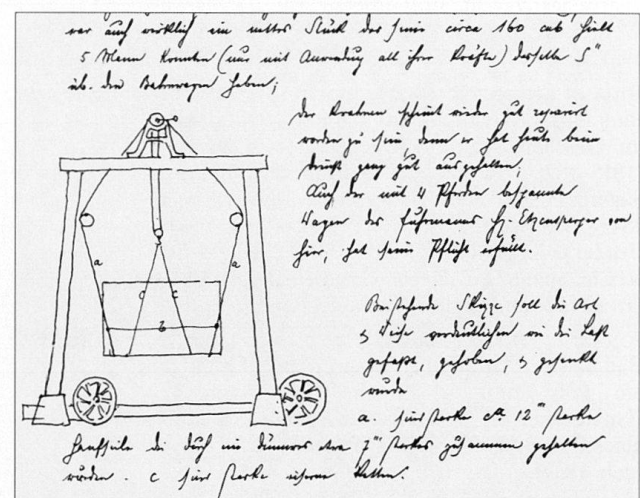 war auch wirklich ein nettes Stück der seine circa 160 cub' hielt
5 Mann konnten (nur mit Anwendung all ihrer Kräfte) dasselbe 5"
üb. den Bahnwagen heben;
der Krahnen scheint wieder gut reparirt
worden zu sein, denn er hat heute beim
ganz gut ausgehalten;
Auch der mit 4 Pferden bespannte
Wagen des Fuhrmanns H. Etzensperger von
hier, hat seine Pflicht erfüllt.
a
a
c
c
b
Beistehende Skizze soll die Art
& Weise verdeutlichen wie die Last
gefaßt, gehoben, & gesenkt
wurde
a. sind starke ca 12''' starke
Hanfseile die durch ein dünneres etwa 7''' starkes zusammen gehalten
wurden. c sind starke eiserne Ketten.